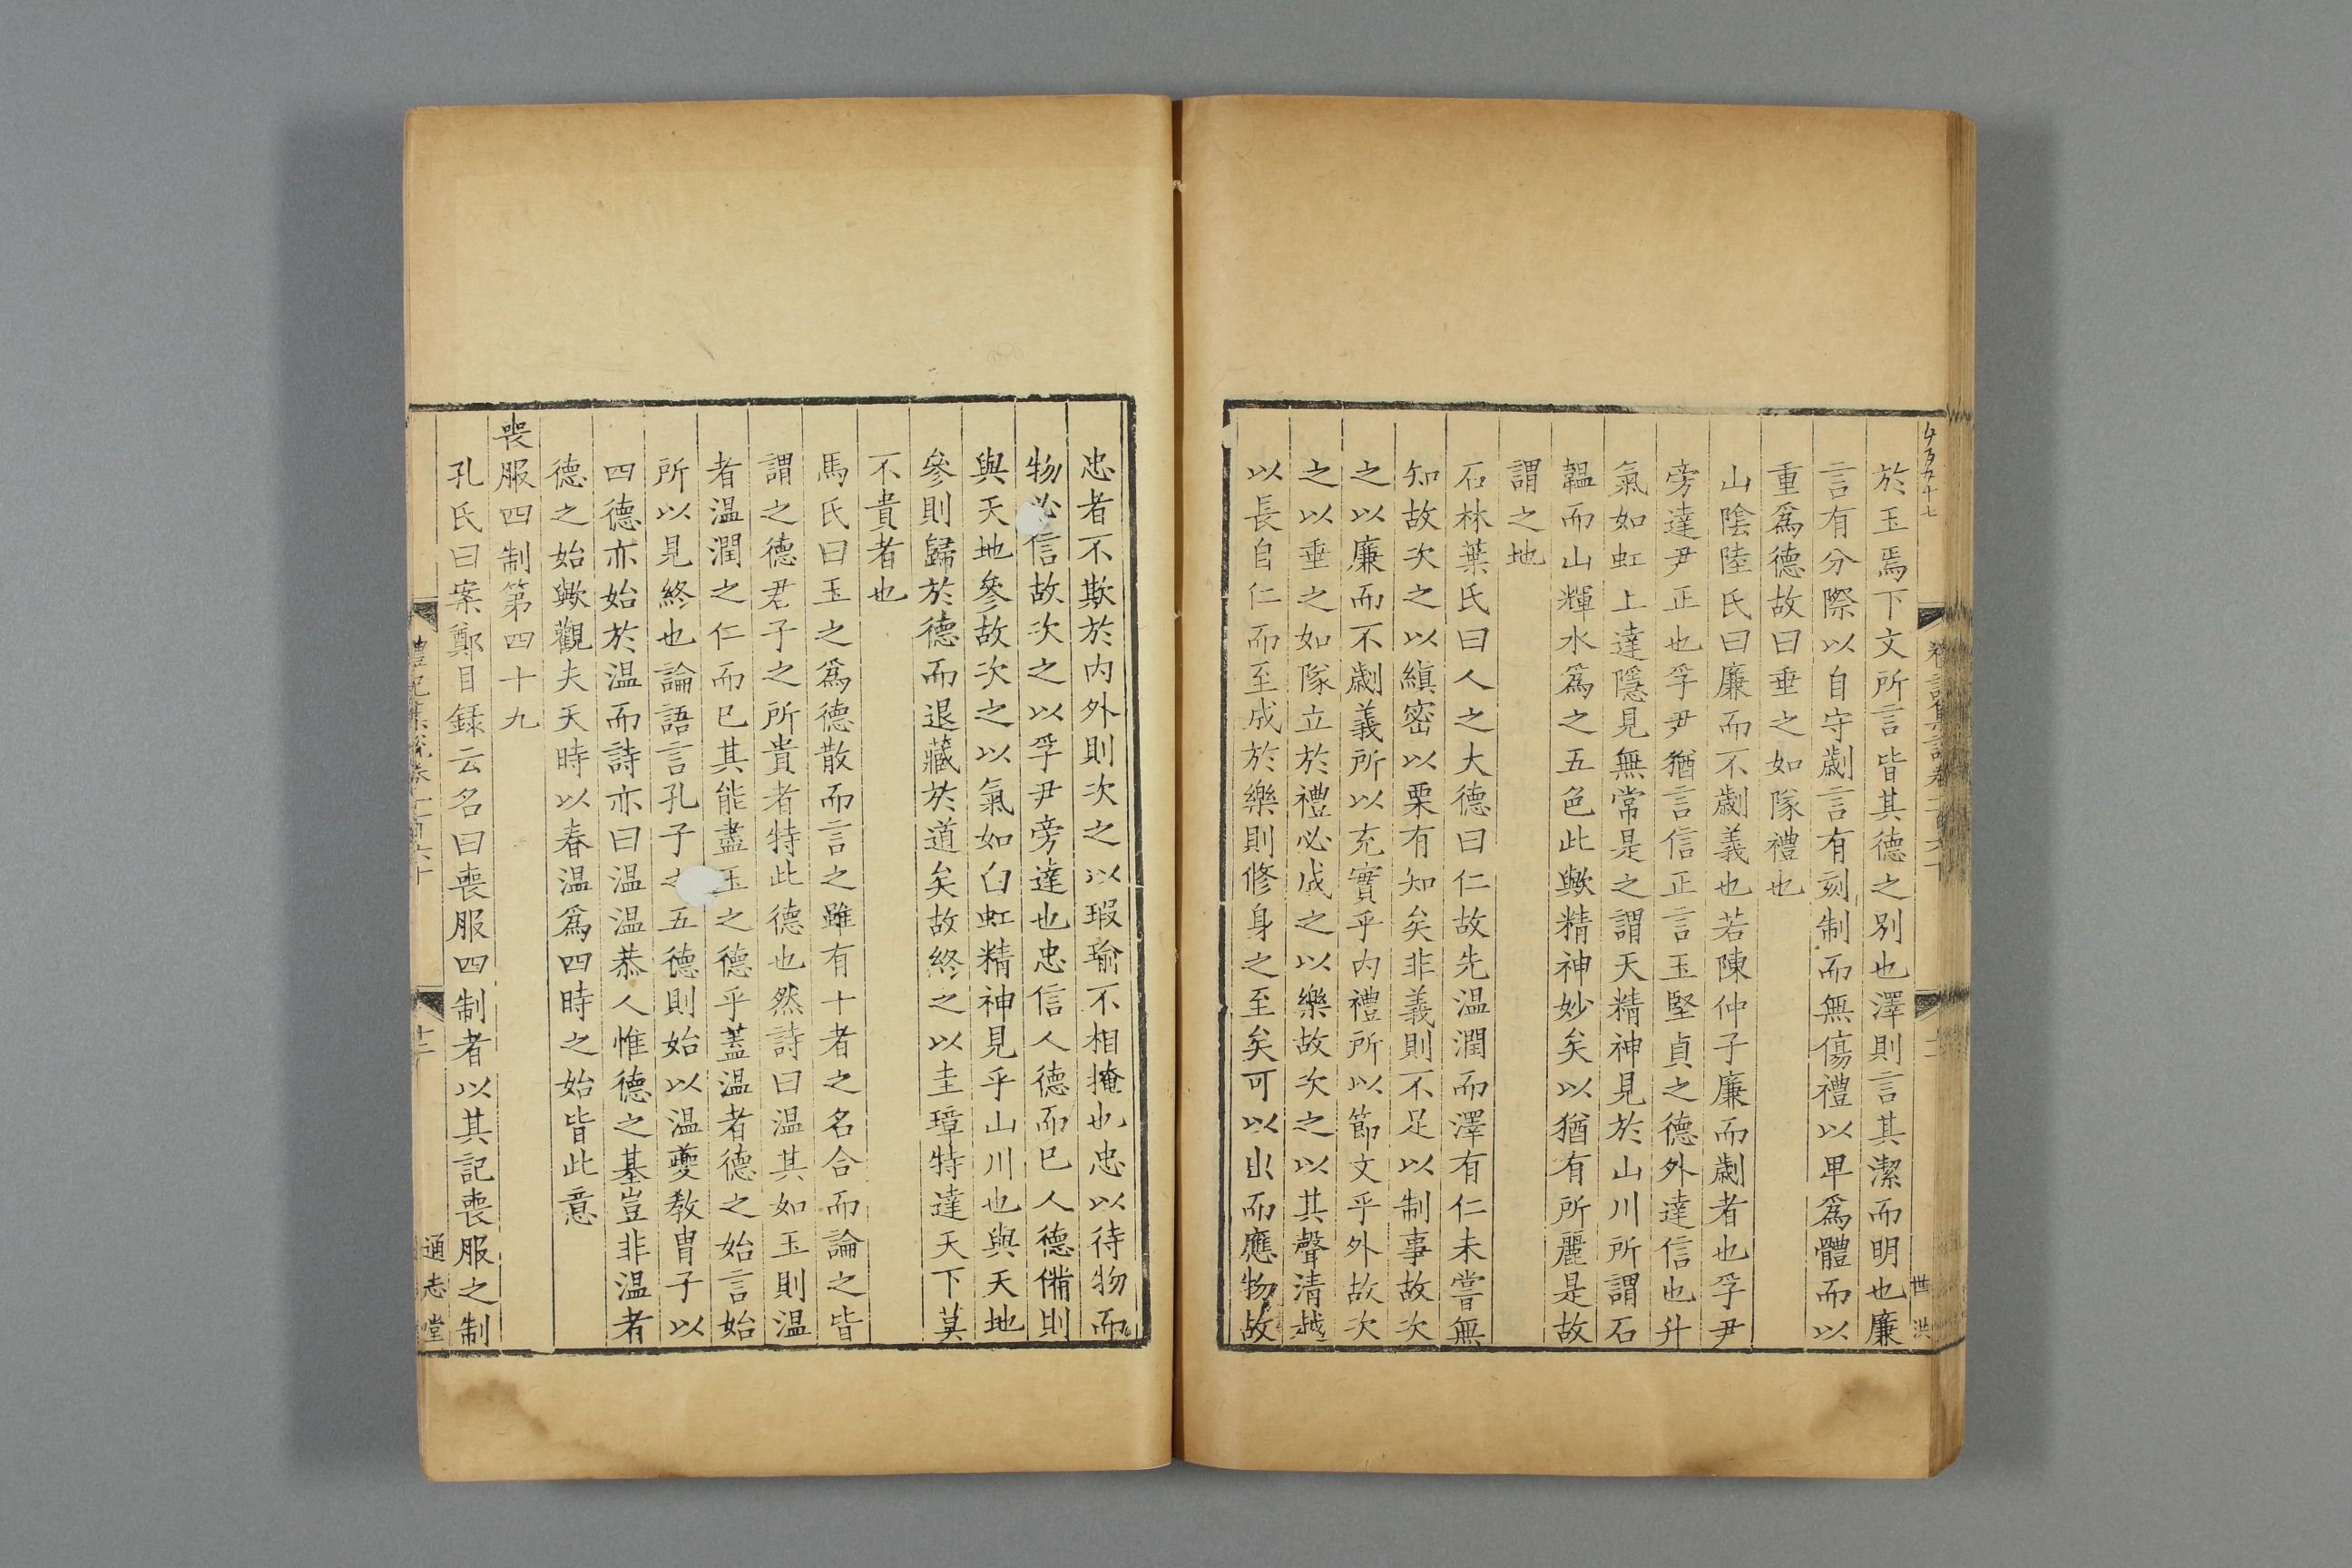 於玉焉下文所言皆其德之别也澤則言其潔而明也廉
言有分際以自守劌言有刻制而無傷禮以卑爲體而以
重爲德故曰垂之如隊禮也
山陰陸氏曰廉而不劌義也若陳仲子廉而劌者也孚尹
旁達尹正也孚尹猶言信正言玉堅貞之德外達信也升
氣如虹上達隱見無常是之謂天精神見於山川所謂石
韞而山輝水爲之五色此歟精神妙矣以猶有所麗是故
謂之地
石林葉氏曰人之大德曰仁故先温潤而澤有仁未嘗無
知故次之以縝密以栗有知矣非義則不足以制事故次
之以廉而不劌義所以充實乎内禮所以節文乎外故次
之以垂之如隊立於禮必成之以樂故次之以其聲清越
以長自仁而至成於樂則修身之至矣可以出而應物故
忠者不欺於内外則次之以瑕瑜不相掩也忠以待物而
物必信故次之以孚尹旁達也忠信人德而已人德備則
與天地參故次之以氣如白虹精神見乎山川也與天地
參則歸於德而退藏於道矣故終之以圭璋特達天下莫
不貴者也
馬氏曰玉之爲德散而言之雖有十者之名合而論之皆
謂之德君子之所貴者特此德也然詩曰温其如玉則温
者温潤之仁而已其能盡玉之德乎蓋温者德之始言始
所以見終也論語言孔子之五德則始以温夔教胄子以
四德亦始於温而詩亦曰温温恭人惟德之基豈非温者
德之始歟觀夫天時以春温爲四時之始皆此意
喪服四制第四十九
孔氏曰案鄭目録云名曰喪服四制者以其記喪服之制
通志堂